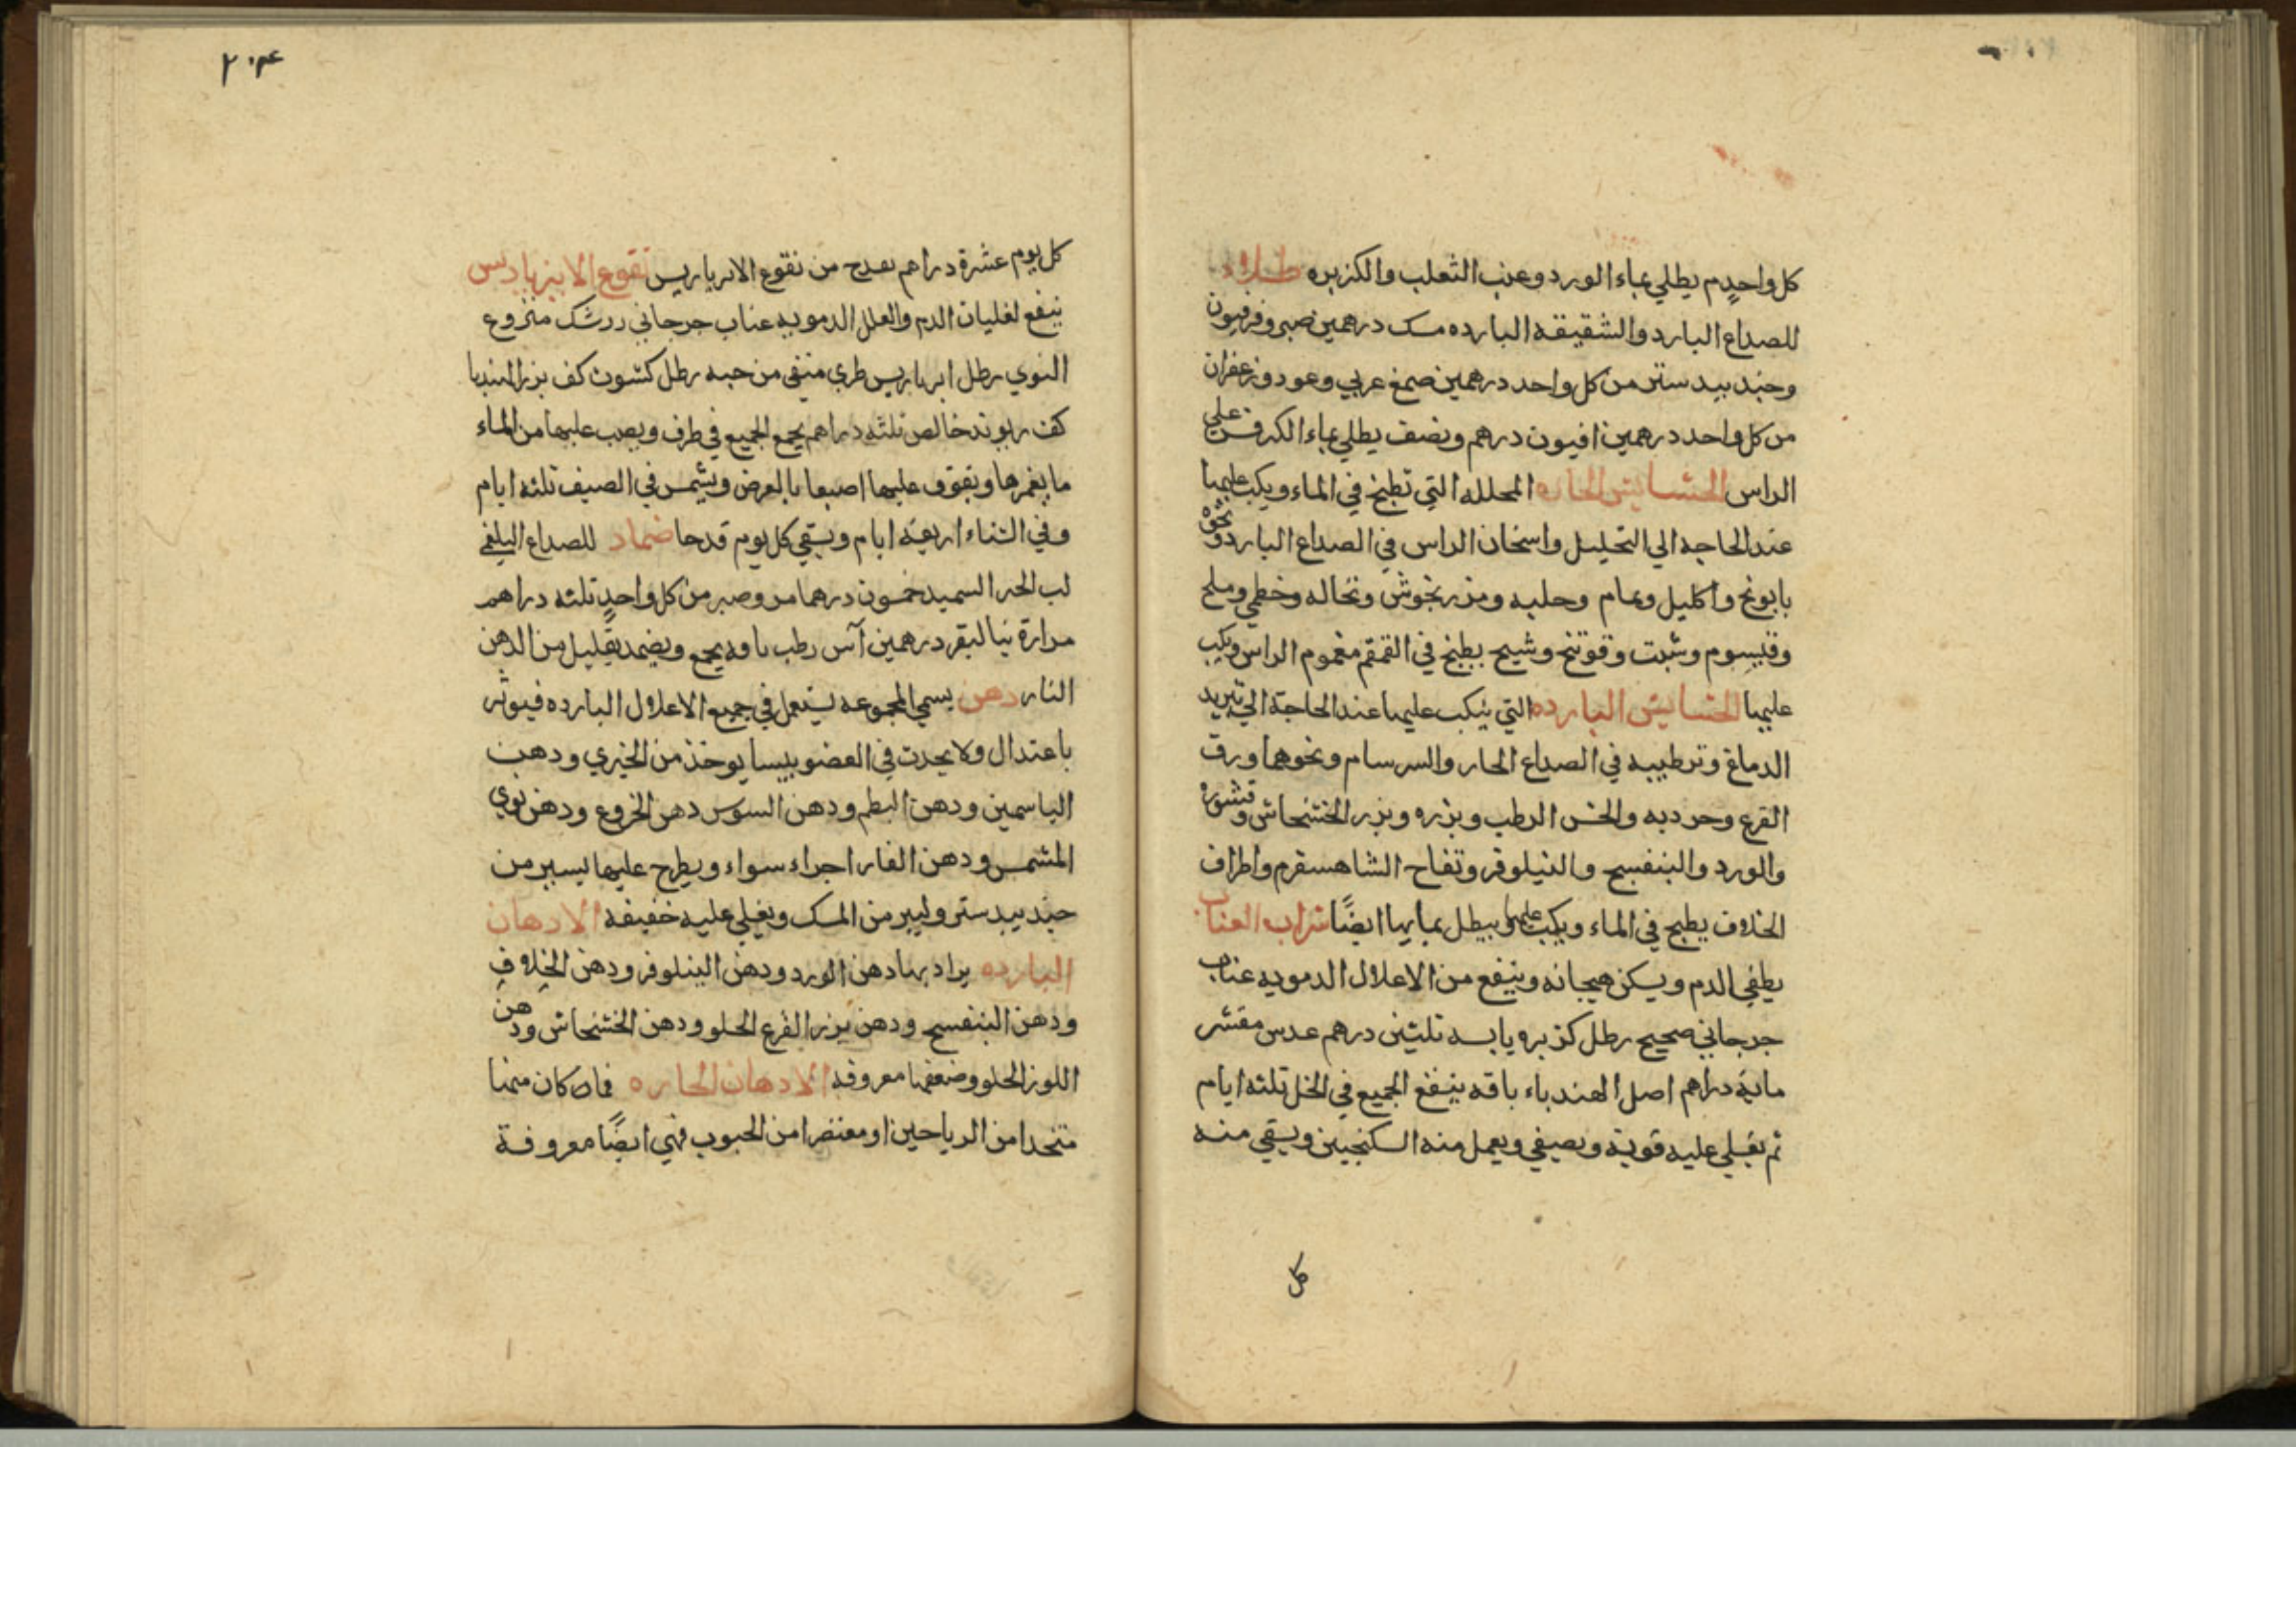 كل واحدٍ م يطلي بماء الورد وعنب الثعلب والكزبره طلاء
للصداع البارد والشقيقه البارده مسك درهمين صبر وفرفيون
وجندبيدستر من كل واحد درهمين صمغ عربي وعود وزعفران
من كل واحد درهمين افيون درهم ونصف يطلي بماء الكرفس علي
الراس الحشايش الحاره المحلله التي تطبخ في الماء ويكب عليها
عند الحاجة الي التحليل واسخان الراس في الصداع البارد ونحوه
بابونج واكليل ونمام وحلبه ومرزنجوش ونخاله وخطمي وملح
وقيسوم وشبت وفوتنج وشيح يطبخ في القمقم مغموم الراس ويكب
عليها الحشايش البارده التي ينكب عليها عند الحاجة الي تبريد
الدماغ وترطيبه في الصداع الحار والسرسام ونحوها ورق
القرع وجرده والخس الرطب وبزره وبزر الخشخاش وقشوره
والورد والبنفسج والنيلوفر وتفاح الشاهسفرم واطراف
الخلاف يطبخ في الماء ويكب عليها ويبطل بمايها ايضًا شراب العناب
يطفي الدم ويسكن هيجانه وينفع من الاعلال الدمويه عناب
جرجاني صحيح رطل كزبره يابسه ثلثين درهم عدس مقشر
مايه دراهم اصل الهندباء باقه ينقع الجميع في الخل ثلثه ايام
ثم يغلي عليه قويه ويصفي ويعمل منه السكنجبين ويسقي منه
كل
٢٠٤
كل يوم عشرة دراهم بقدح من نقوع الابرباريس نقوع الابرباريس
ينفع لغليان الدم والعلل الدمويه عناب جرجاني زرشك منزوع
النوي رطل ابرباريس طري منقي من حبه رطل كشوث كف بزر الهندبا
كف ريوند خالص ثلثه دراهم يجمع الجميع في ظرف ويصب عليها من الماء
ما يغمرها ويفوق عليها اصبعا بالعرض ويشمس في الصيف ثلثه ايام
وفي الشتاء اربعة ايام ويسقي كل يوم قدحا ضماد للصداع البلغمي
لب الخبز السميد خمسون درهما مر وصبر من كل واحدٍ ثلثه دراهم
مرارة البقر درهمين آس رطب باقه يجمع ويضمد بقليل من الدهن
النار دهن يسمي المجموعه يستعمل في جميع الاعلال البارده فيوثر
باعتدال ولا يحدث في العضو يبسا يوخذ من الخيري ودهن
الياسمين ودهن البطم ودهن السوسن دهن الخروع ودهن نوي
المشمس ودهن الغار اجزاء سواء ويطرح عليها يسير من
جندبيدستر ويسير من المسك ويغلي عليه خفيفه الادهان
البارده يراد بها دهن الورد ودهن النيلوفر ودهن الخلاف
ودهن البنفسج ودهن بزر القرع الحلو ودهن الخشخاش ودهن
اللوز الحلو وصنعتها معروفه الادهان الحاره فما كان منها
متخدا من الرياحين او معتصرا من الحبوب فهي ايضًا معروفة